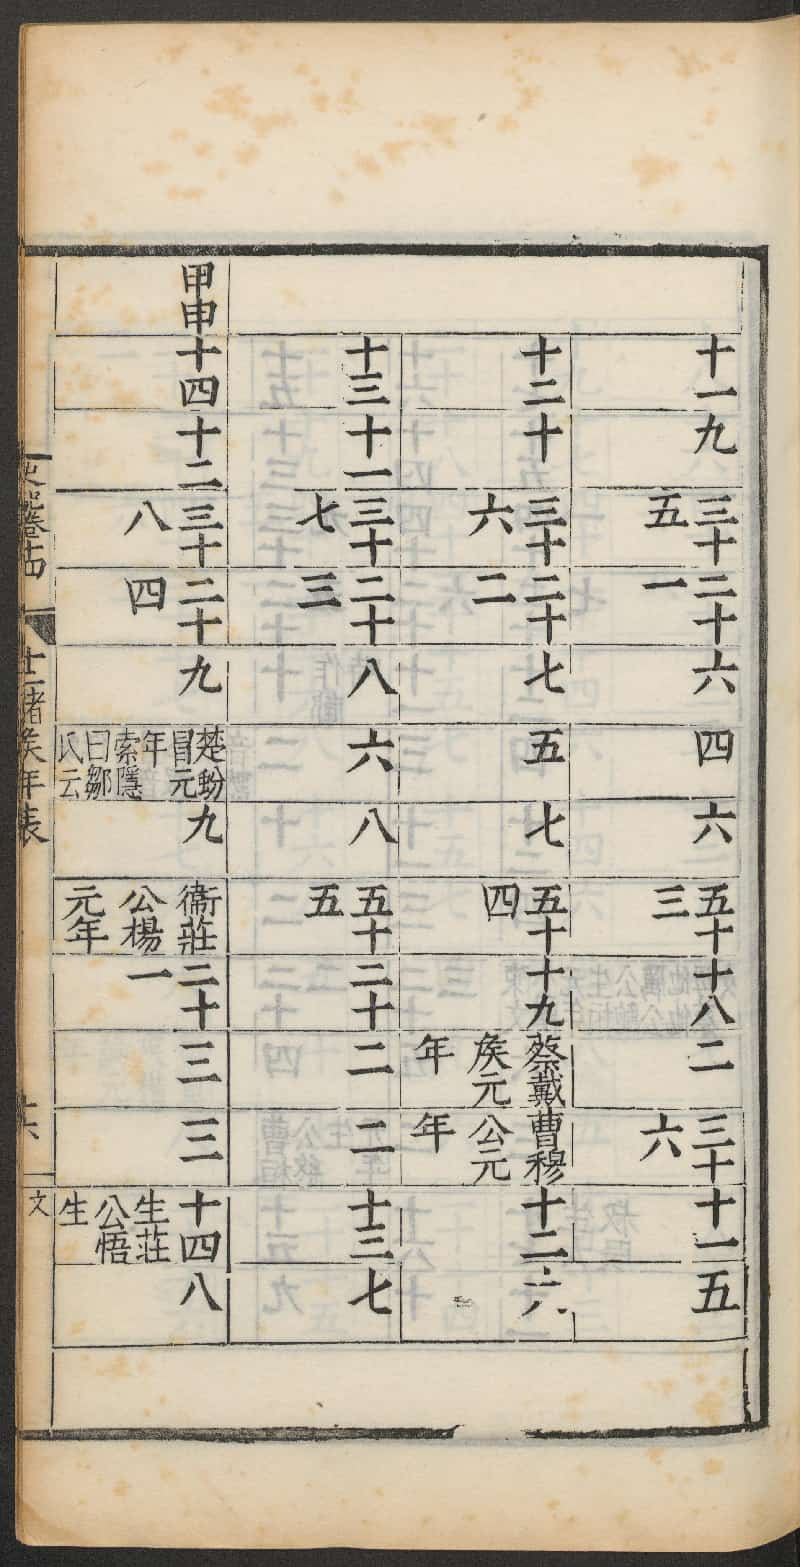 十一
九
三十五
二十一
六
四
六
五十三
十八
二
三十六
十一
五
十二
十
三十六
二十二
七
五
七
五十四
十九
蔡戴侯元年
曹穆公元年
十二
六
十三
十一
三十七
二十三
八
六
八
五十五
二十
二
二
十三
七
甲申
十四
十二
三十八
二十四
九
楚蚡冒元年索隱曰鄒氏云
九
衞莊公楊元年
二十一
三
三
十四生莊公悟生
八
十二諸侯年表
文